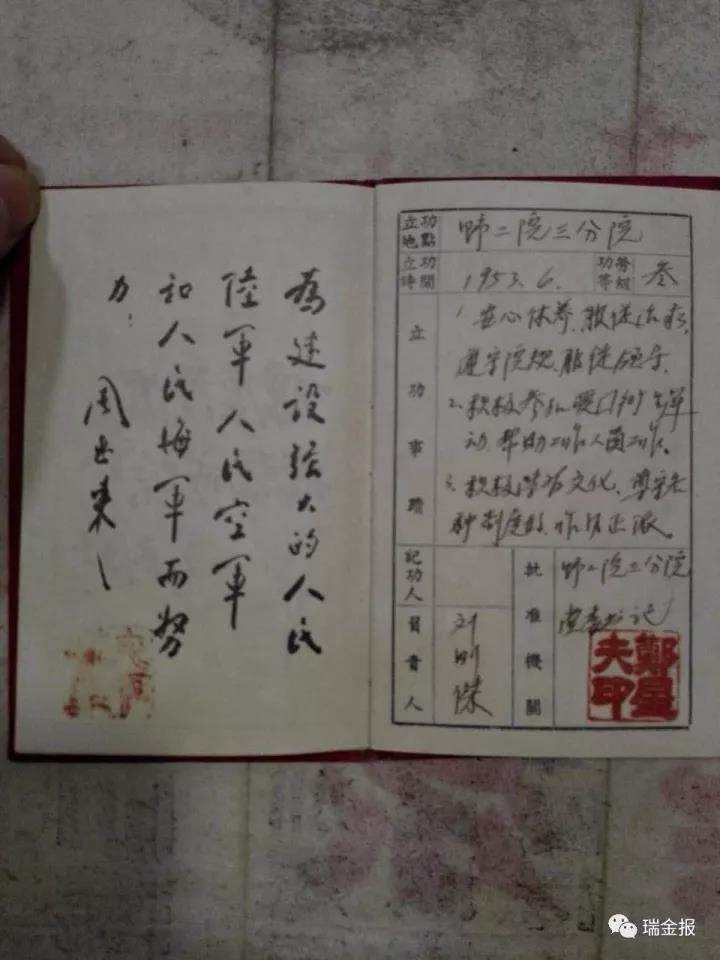 為建设强大的人民
陸軍人民空軍
和人民海軍而努
力!
周恩来
立功地點
野二院三分院
立功時間
1953.6.
功勞等級
叁
立功事蹟
1. 安心休养、服从治疗、
遵守院规、服从领导、
2. 积极参加
动、帮助工作人员工作、
3. 积极学习文化、遵守各
种制度好、作风正派。
記功人
負責人
刘明傑
批准機關
野二院三分院
党委书记
鄭星夫印
瑞金报